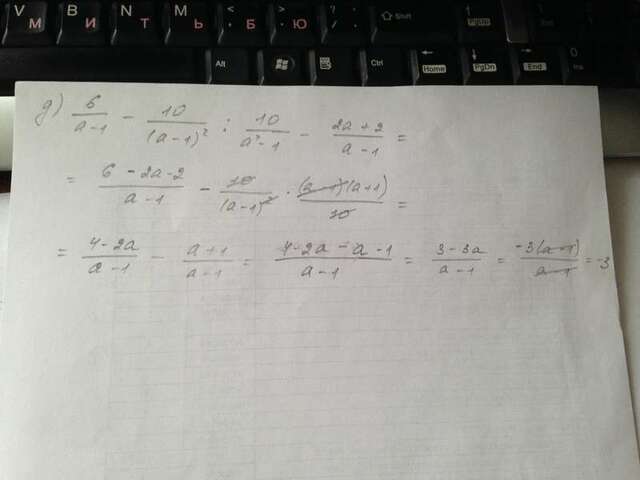 V М B И N Т M Ь < Б > Ю ? / Shift ↑ PgUp
Alt Ctrl ← Home ↓ PgDn → End 0 Ins
д) 6/(a-1) - 10/(a-1)² : 10/(a²-1) - (2a+2)/(a-1) =
= (6-2a-2)/(a-1) - 10/(a-1)² · (a-1)(a+1)/10 =
= (4-2a)/(a-1) - (a+1)/(a-1) = (4-2a-a-1)/(a-1) = (3-3a)/(a-1) = -3(a-1)/(a-1) = -3